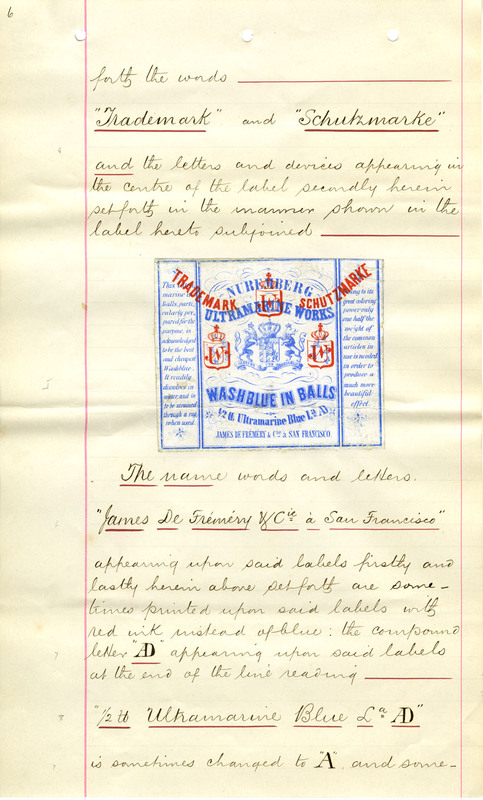 6
forth the words
"Trademark" and "Schutzmarke"
and the letters and devices appearing in
the centre of the label secondly herein
set forth in the manner shown in the
label hereto subjoined
TRADEMARK SCHUTZMARKE
NUREMBERG
ULTRAMARINE WORKS
W
W
W
WASHBLUE IN BALLS
½ ℔ Ultramarine Blue Lª. AD
JAMES DE FRÉMÉRY & Cie à SAN FRANCISCO
This
marine
Balls, partic
ularly pre
pared for the
purpose, is
acknowledged
to be the best
and cheapest
Washblue.
It readily
dissolves in
water, and is
to be strained
through a rag
when used.
ing to its
great coloring
power only
one half the
weight of
the common
articles in
use is needed
in order to
produce a
much more
beautiful
effect.
The name words and letters.
"James De Fréméry & Cie à San Francisco"
appearing upon said labels firstly and
lastly herein above set forth are some-
times printed upon said labels with
red ink instead of blue: the compound
letter "AD" appearing upon said labels
at the end of the line reading
"½ ℔ Ultramarine Blue Lª AD"
is sometimes changed to "A", and some-